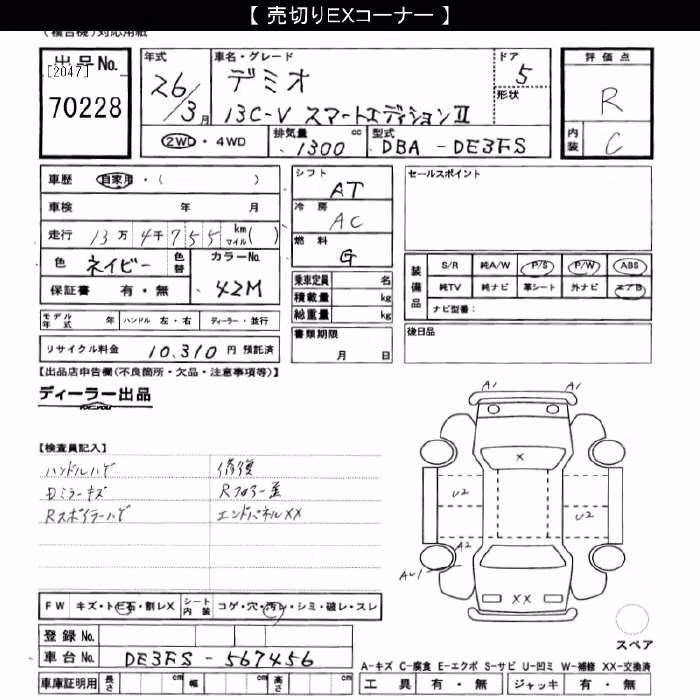 【 売切りEXコーナー 】
(複合機)対応用紙
出品No.
[2047]
70228
年式
26/3月
車名・グレード
デミオ
13C-V スマートエディションⅡ
ドア
5
形状
2WD・4WD
排気量
1300 cc
型式
DBA - DE3FS
評価点
R
内装
C
車歴 自家用・( )
車検 年 月
走行 13万4千755 km マイル( )
色 ネイビー 色替 カラーNo. 42M
保証書 有・無
モデル年式 年 ハンドル 左・右 ディーラー・並行
リサイクル料金 10,310 円 預託済
シフト
AT
冷房
AC
燃料
G
乗車定員 名
積載量 kg
総重量 kg
書類期限
月 日
セールスポイント
装備品
S/R 純A/W P/S P/W ABS
純TV 純ナビ 革シート 外ナビ エアB
ナビ型番：
後日品
【出品店申告欄(不良箇所・欠品・注意事項等)】
ディーラー出品
【検査員記入】
ハンドルハゲ 修復
Dミラーキズ Rフロアー歪
Rスポイラーハゲ エンドパネルXX
A1 A1
X
U2 U2
A2
AU1
XX
スペア
FW キズ・トビ石・割レX シート内装 コゲ・穴・汚レ・シミ・破レ・スレ
登録No.
車台No. DE3FS - 567456
車庫証明用 長さ cm 幅 cm 高さ cm
A-キズ C-腐食 E-エクボ S-サビ U-凹ミ W-補修 XX-交換済
工具 有・無 ジャッキ 有・無